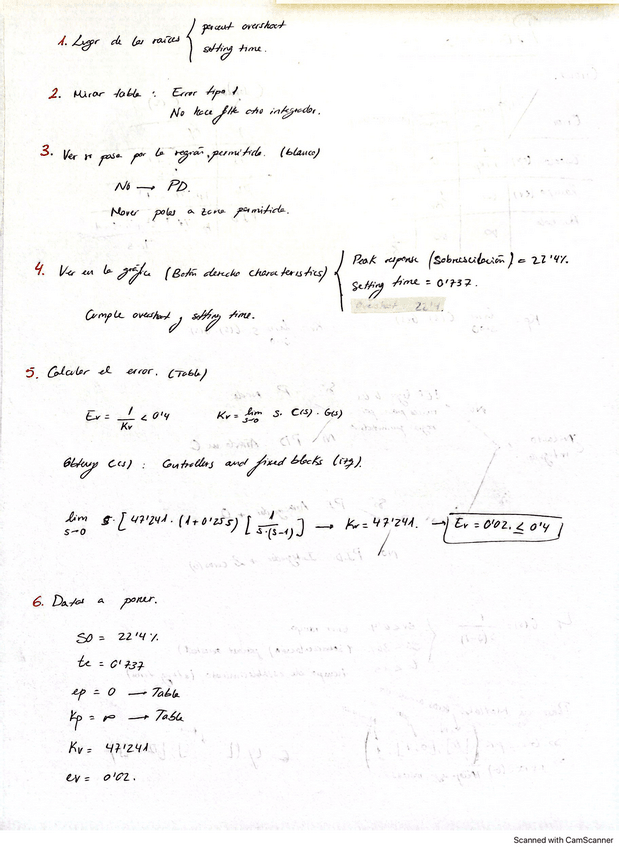 1. Lugar de las raíces { percent overshoot
setting time.
2. Mirar tabla : Error tipo 1
No hace falta otro integrador.
3. Ver si pasa por la región permitida. (blanco)
No → PD.
Mover polos a zona permitida.
4. Ver en la gráfica (Botón derecho characteristics) { Peak response (sobreoscilación) = 22'4%.
Setting time = 0'737.
Overshoot 22'4.
Cumple overshoot y setting time.
5. Calcular el error. (Tabla)
Ev = 1/Kv < 0'4   Kv = lim s→0 s. C(s) . G(s)
Obtengo C(s) : Controllers and fixed blocks (izq).
lim s→0 s · [ 47'241 · (1+0'25s) [ 1/s·(s-1) ] → Kv = 47'241. → Ev = 0'02. ≤ 0'4
6. Datos a poner.
SO = 22'4%
te = 0'737
ep = 0 → Tabla
Kp = ∞ → Tabla
Kv = 47'241
ev = 0'02.
Scanned with CamScanner